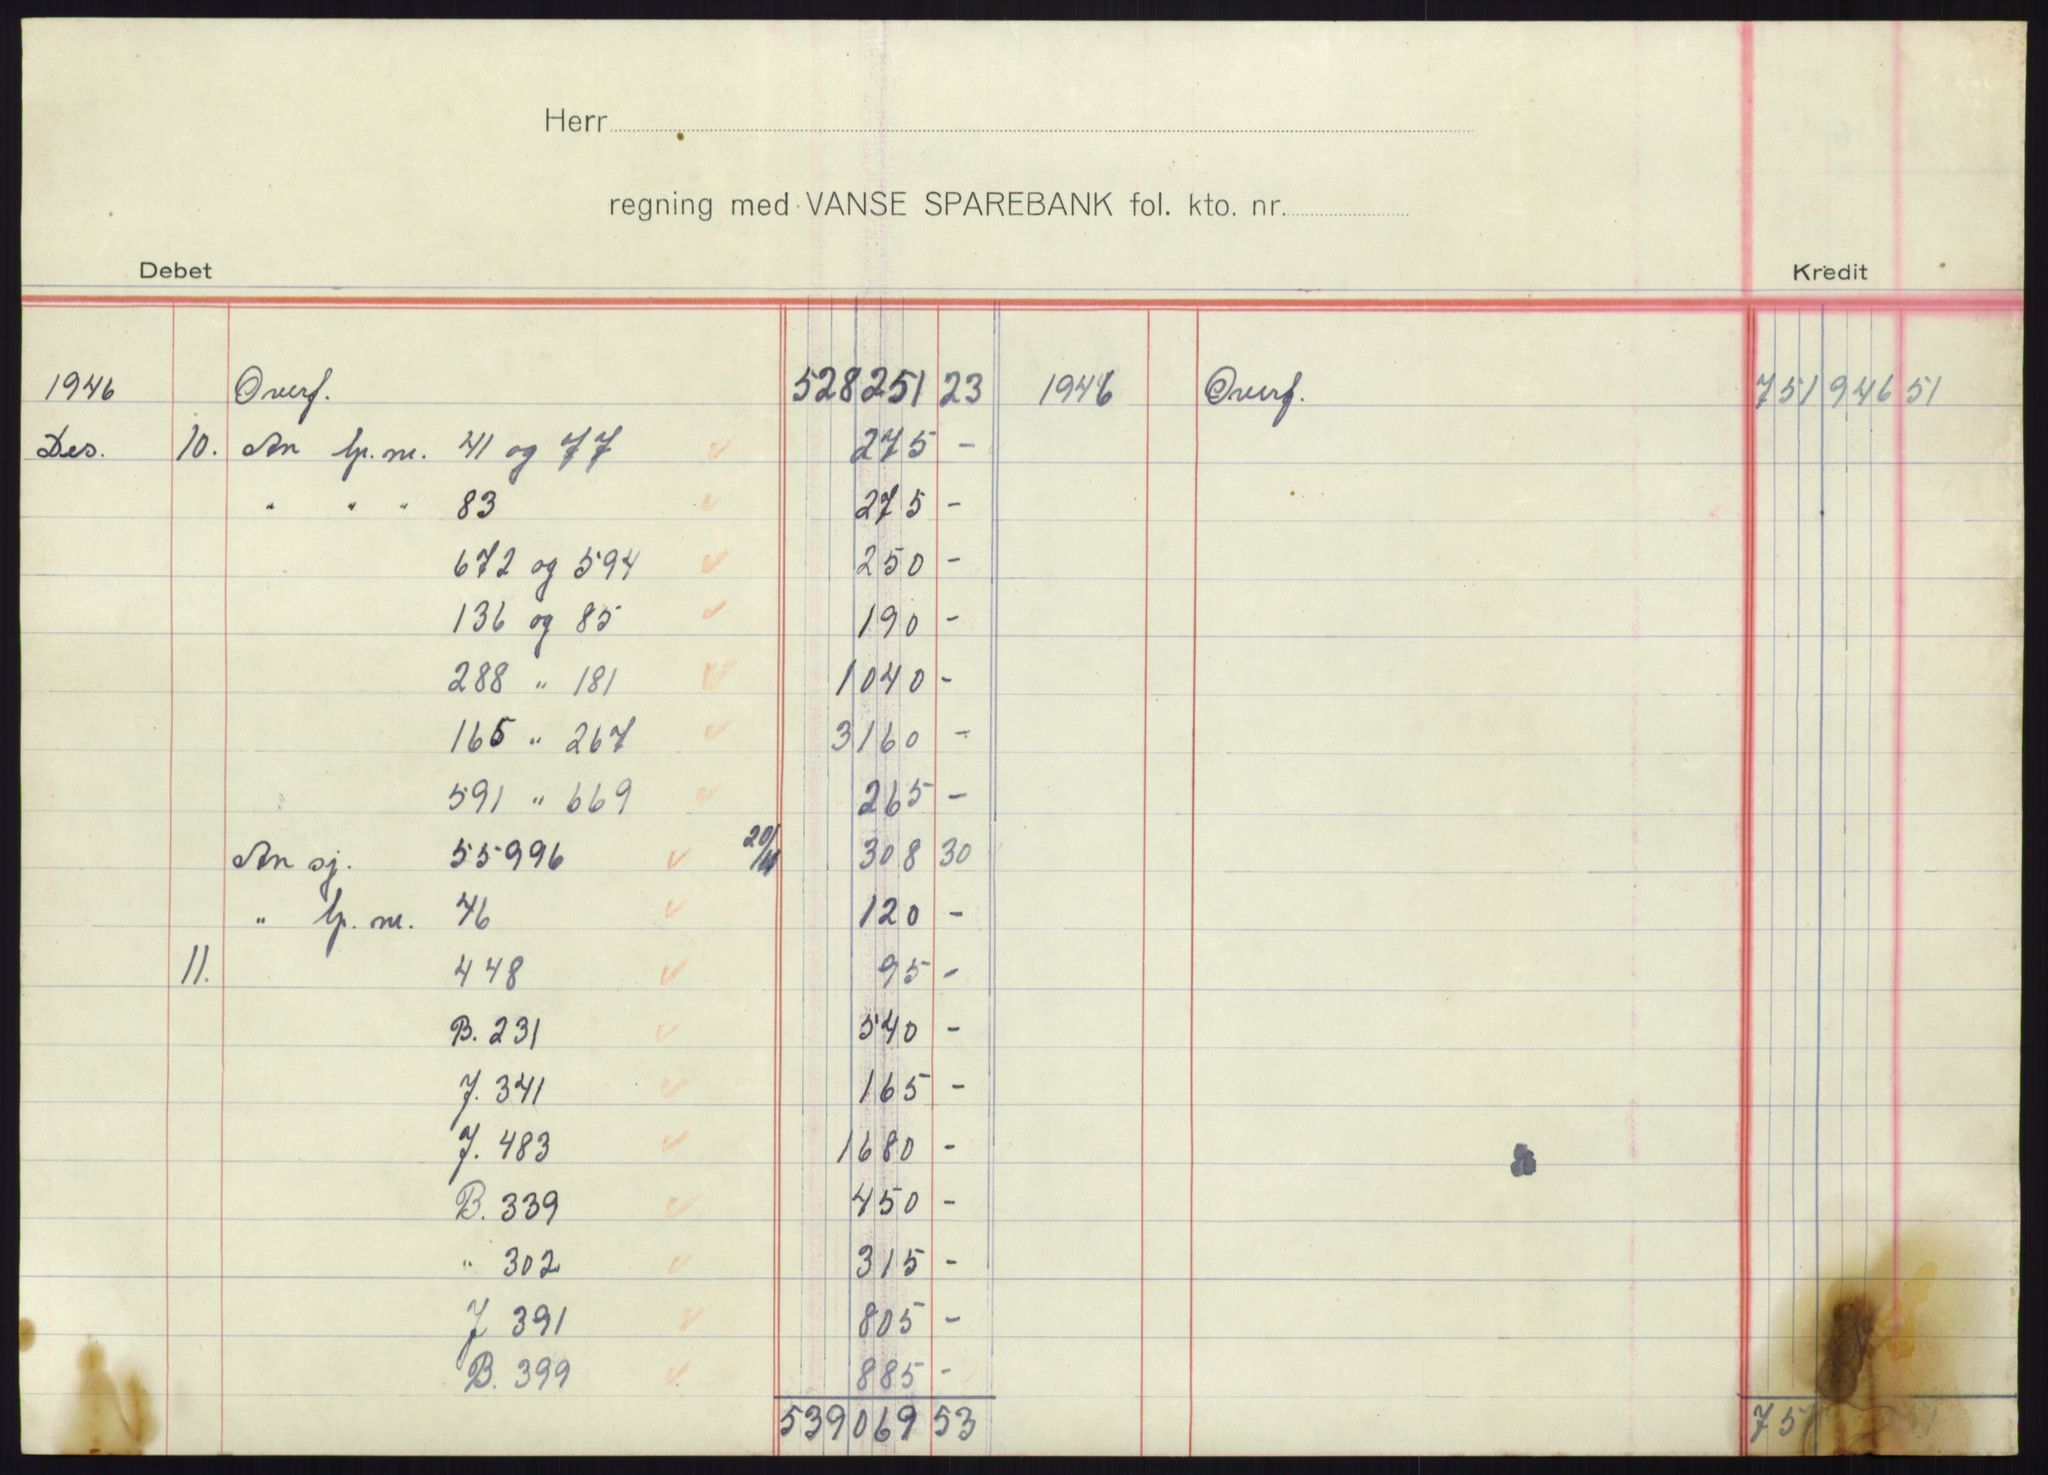 Herr
regning med VANSE SPAREBANK fol. kto. nr.
Debet Kredit
1946 Overf. 528 251 23 1946 Overf. 751 946 51
Des. 10. An lp. nr. 41 og 77 275 -
" " " 83 275 -
672 og 594 250 -
136 og 85 190 -
288 " 181 1040 -
165 " 267 3160 -
591 " 669 265 -
An sj. 55996 20/11 308 30
" lp. nr. 46 120 -
11. 448 95 -
B. 231 540 -
J. 341 165 -
J. 483 1680 -
B. 339 450 -
" 302 315 -
J 391 805 -
B. 399 885 -
539 069 53 751